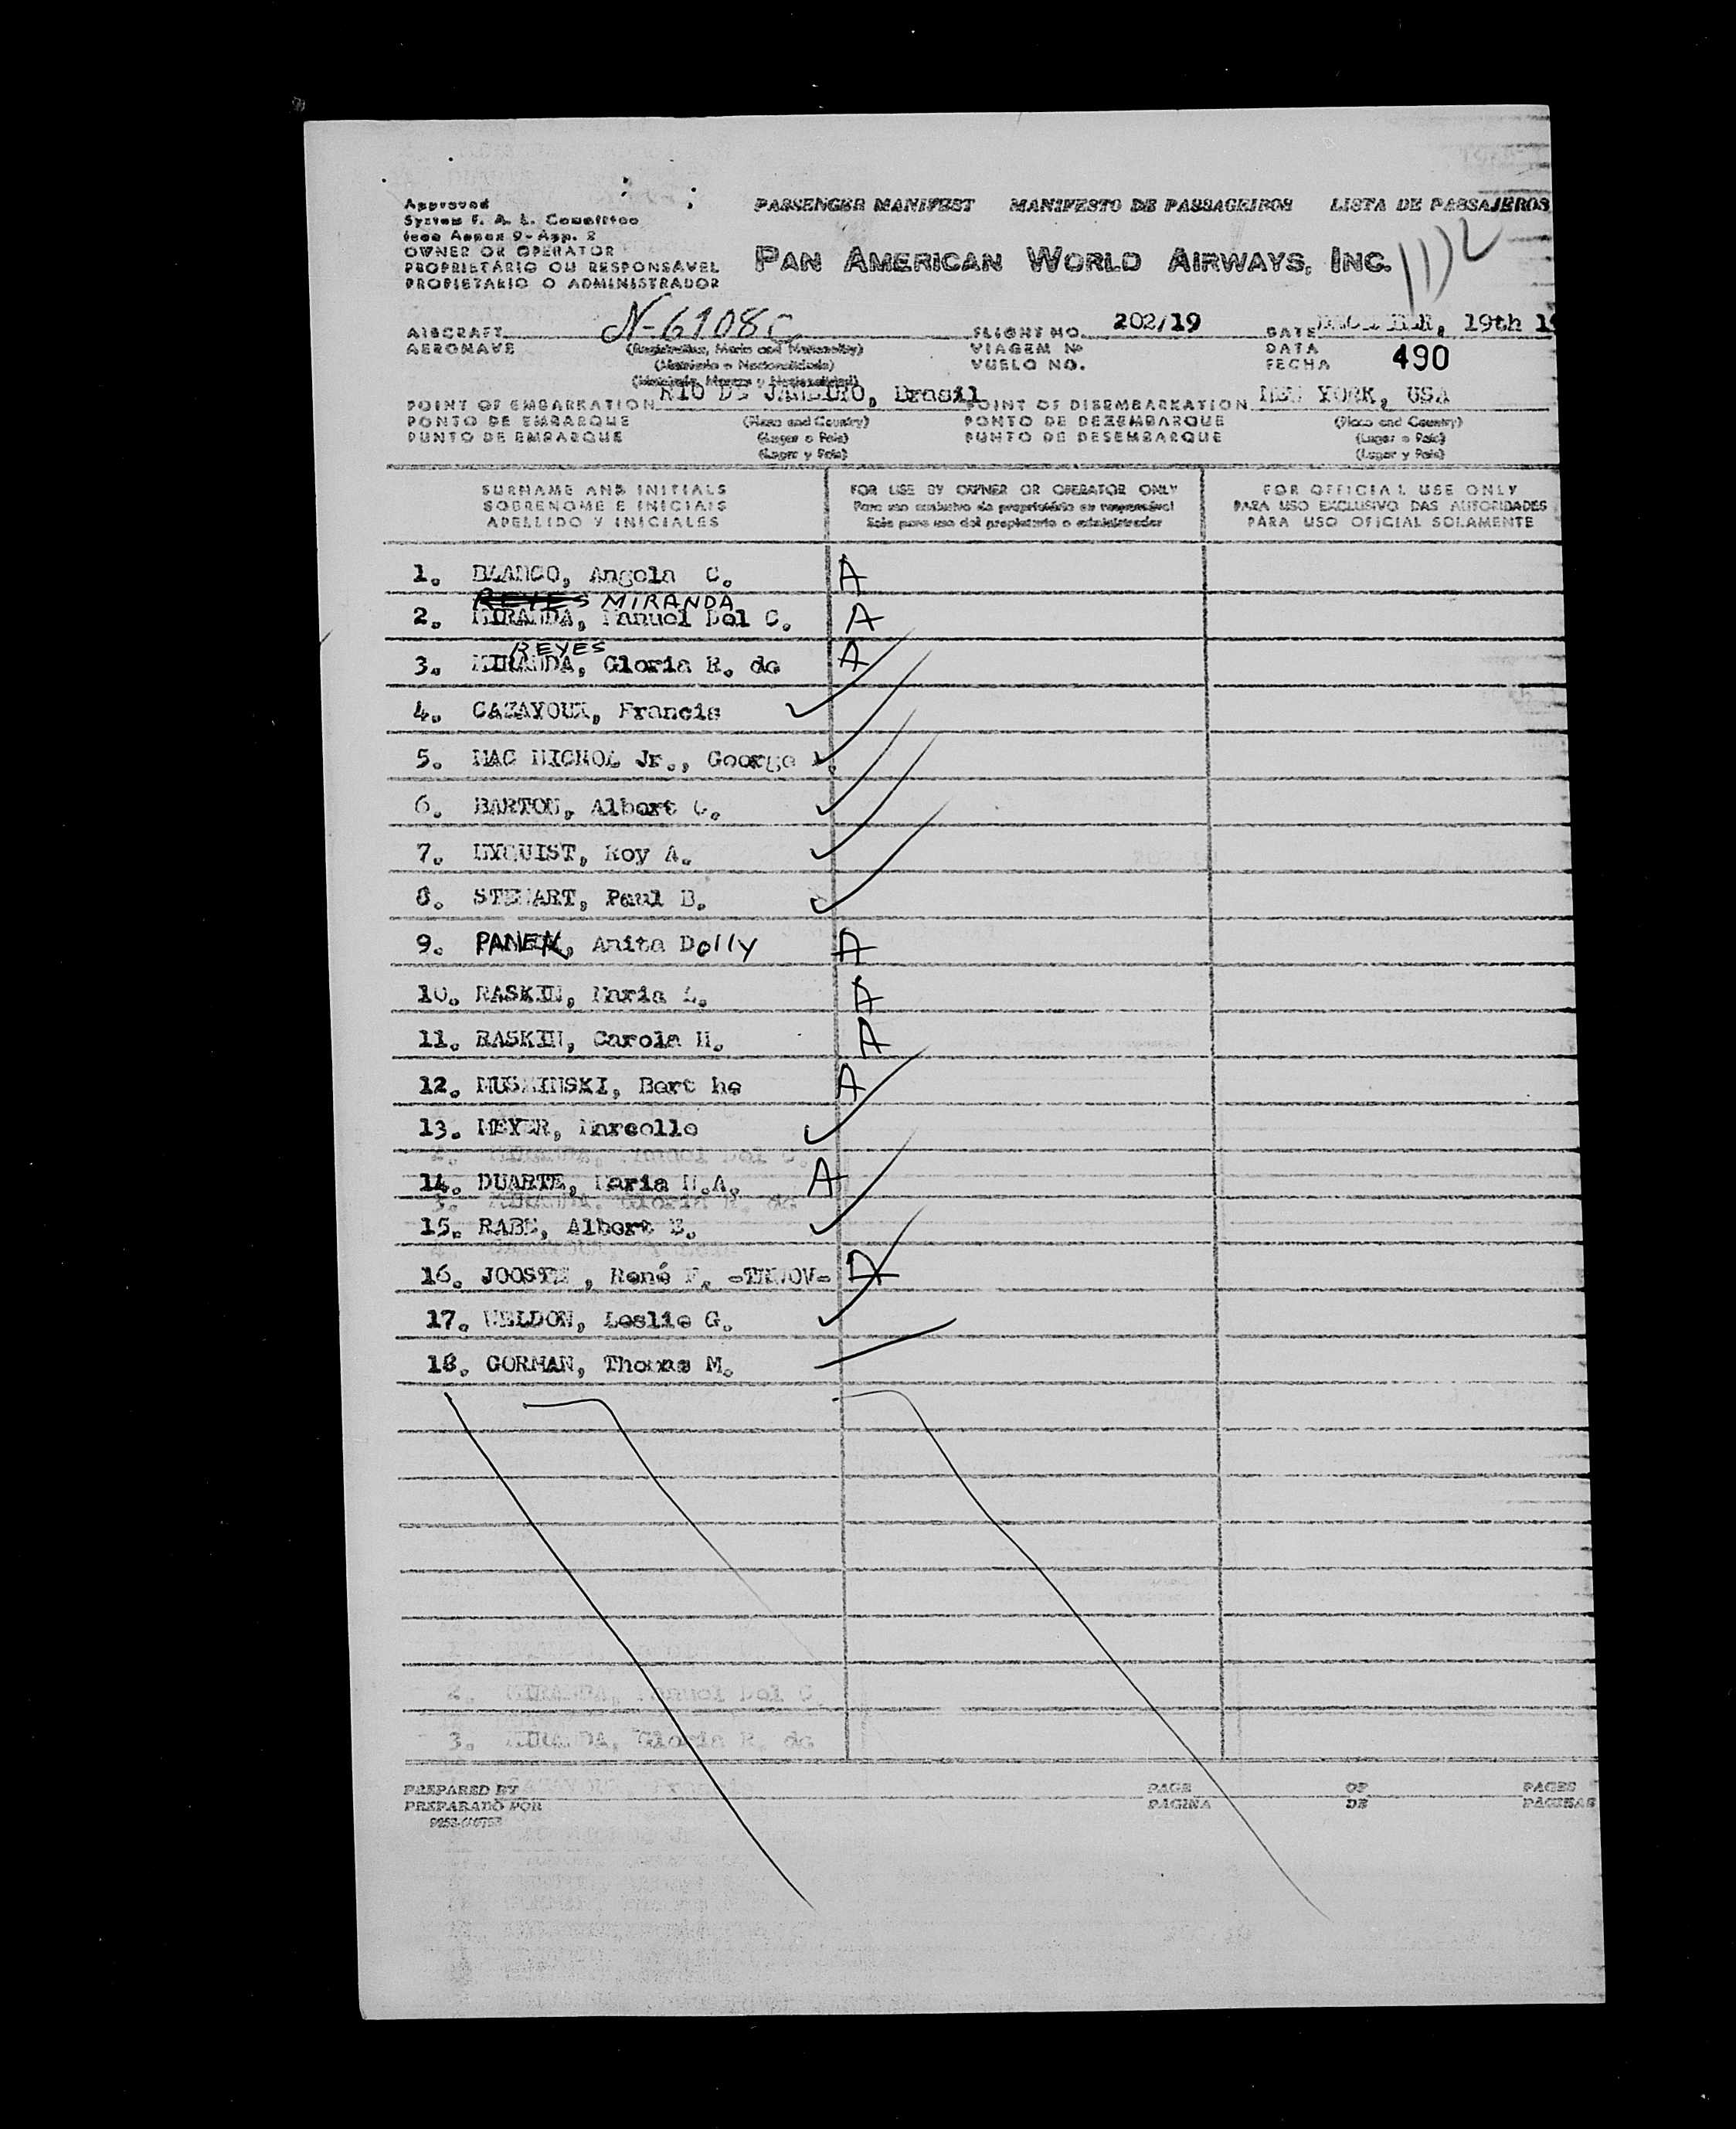 Approved
System F. A. L. Committee
(see Annex 9-App. 2
OWNER OR OPERATOR
PROPRIETÁRIO OU RESPONSÁVEL
PROPIETARIO O ADMINISTRADOR
PASSENGER MANIFEST MANIFESTO DE PASSAGEIROS LISTA DE PASAJEROS
PAN AMERICAN WORLD AIRWAYS, INC.
AIRCRAFT N-6108C FLIGHT NO. 202/19 DATE DECEMBER, 19th
AERONAVE (Registration, Marks and Nationality) VIAGEM Nº DATA 490
(Matrícula e Nacionalidade) VUELO NO. FECHA
(Matrícula, Marcas y Nacionalidad)
POINT OF EMBARKATION RIO DE JANEIRO, Brasil POINT OF DISEMBARKATION NEW YORK, USA
PONTO DE EMBARQUE (Place and Country) PONTO DE DEZEMBARQUE (Place and Country)
PUNTO DE EMBARQUE (Lugar e País) PUNTO DE DESEMBARQUE (Lugar e País)
(Lugar y País) (Lugar y País)
SURNAME AND INITIALS FOR USE BY OWNER OR OPERATOR ONLY FOR OFFICIAL USE ONLY
SOBRENOME E INICIAIS Para uso exclusivo do proprietário ou responsável PARA USO EXCLUSIVO DAS AUTORIDADES
APELLIDO Y INICIALES Solo para uso del propietario o administrador PARA USO OFICIAL SOLAMENTE
1. BLANCO, Angela C. A
REYES MIRANDA
2. MIRANDA, Manuel Del C. A
REYES
3. MIRANDA, Gloria R. de A
4. CAZAYOUX, Francis
5. MAC NICHOL Jr., George
6. BARTON, Albert G.
7. NYQUIST, Roy A.
8. STEWART, Paul B.
9. PANEK, Anita Dolly A
10. RASKIN, Maria L. A
11. RASKIN, Carola H. A
12. MUSZINSKI, Bert he A
13. MEYER, Marcelle
14. DUARTE, Maria H.A. A
15. RABE, Albert E.
16. JOOSTE , René F. A
17. WELDON, Leslie G.
18. GORMAN, Thomas M.
2. MIRANDA, Manuel Del C.
3. MIRANDA, Gloria R. de
PREPARED BY PAGE OF PAGES
PREPARADO POR PÁGINA DE PÁGINAS